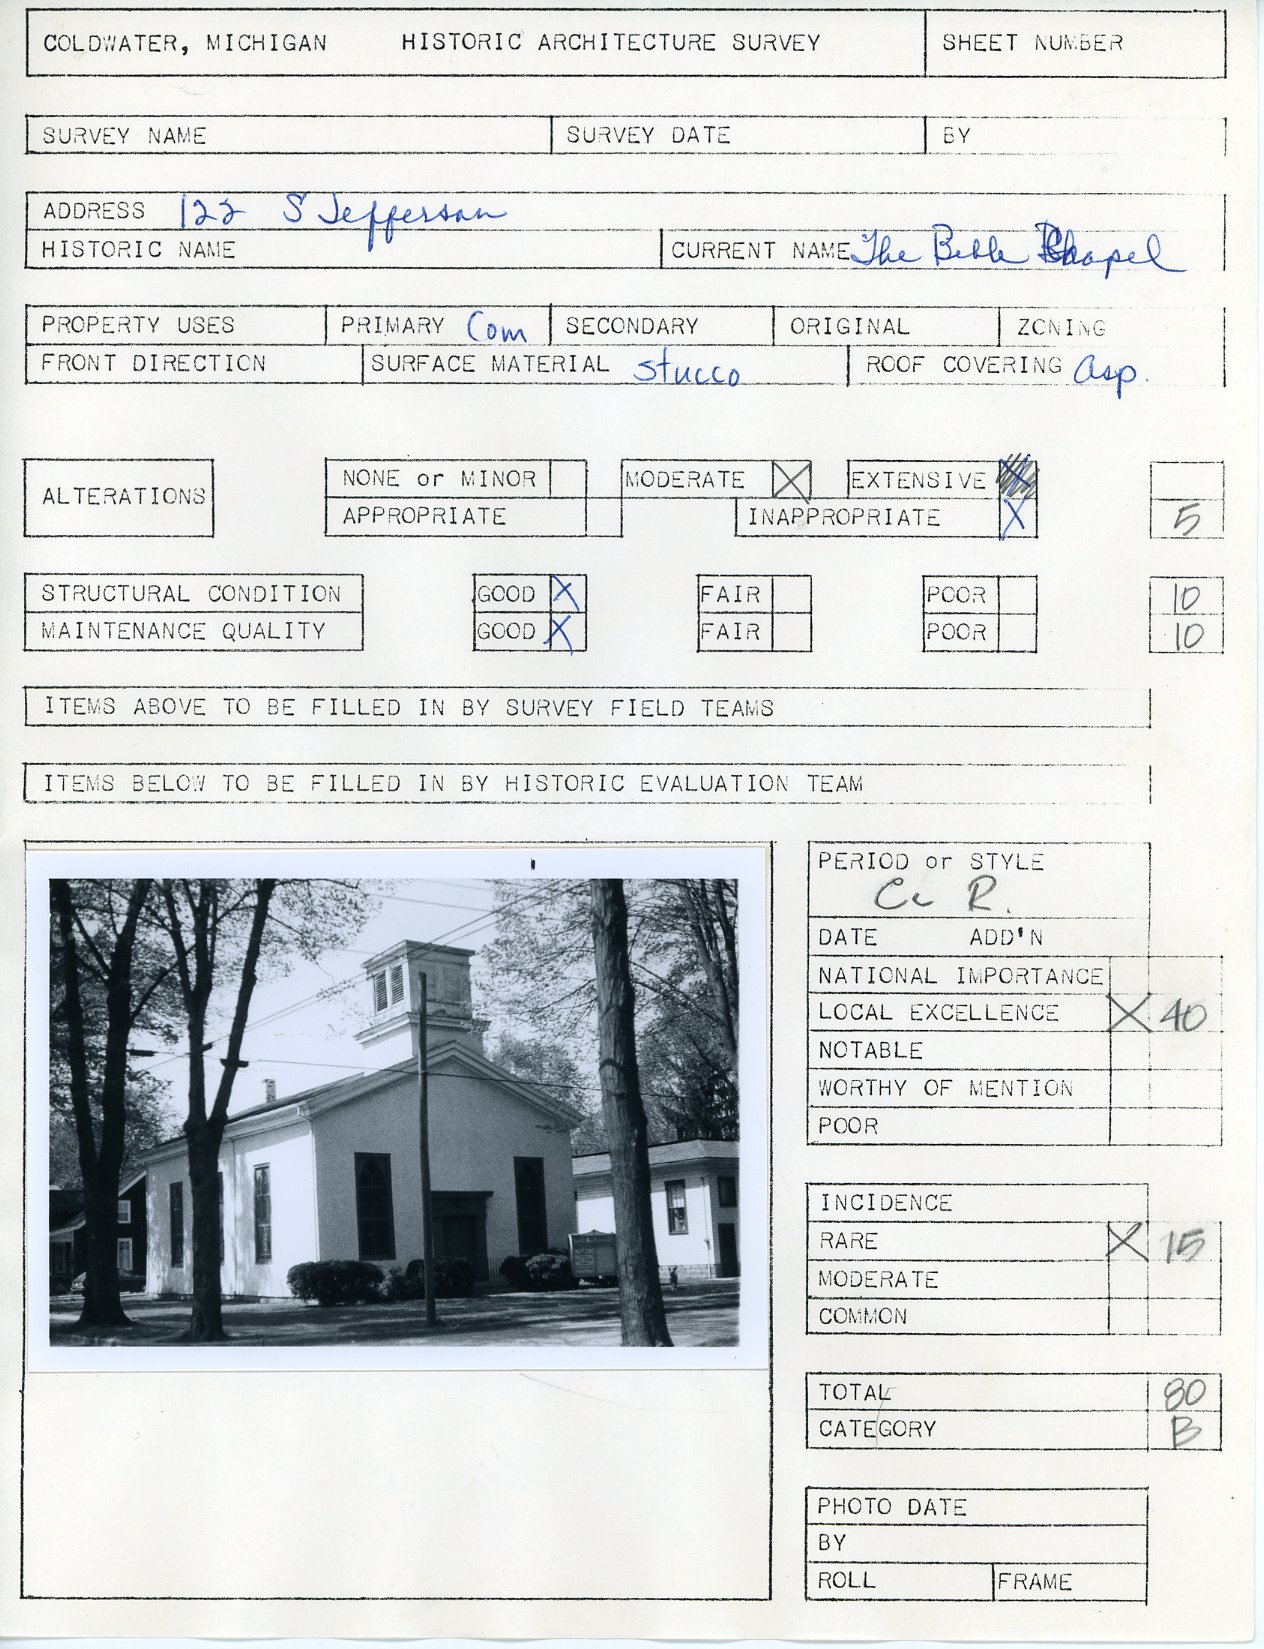 COLDWATER, MICHIGAN HISTORIC ARCHITECTURE SURVEY SHEET NUMBER
SURVEY NAME SURVEY DATE BY
ADDRESS 122 S Jefferson
HISTORIC NAME CURRENT NAME The Bible Chapel
PROPERTY USES PRIMARY Com SECONDARY ORIGINAL ZONING
FRONT DIRECTION SURFACE MATERIAL stucco ROOF COVERING asp.
ALTERATIONS NONE or MINOR MODERATE X EXTENSIVE
APPROPRIATE INAPPROPRIATE X 5
STRUCTURAL CONDITION GOOD X FAIR POOR 10
MAINTENANCE QUALITY GOOD X FAIR POOR 10
ITEMS ABOVE TO BE FILLED IN BY SURVEY FIELD TEAMS
ITEMS BELOW TO BE FILLED IN BY HISTORIC EVALUATION TEAM
PERIOD or STYLE
R.
DATE ADD'N
NATIONAL IMPORTANCE
LOCAL EXCELLENCE X 40
NOTABLE
WORTHY OF MENTION
POOR
INCIDENCE
RARE X 15
MODERATE
COMMON
TOTAL 80
CATEGORY B
PHOTO DATE
BY
ROLL FRAME